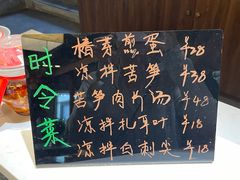 时令菜
椿芽煎蛋 ¥38
凉拌苦笋 ¥38
苦笋肉片汤 ¥48
凉拌折耳叶 ¥18
凉拌白刺尖 ¥18